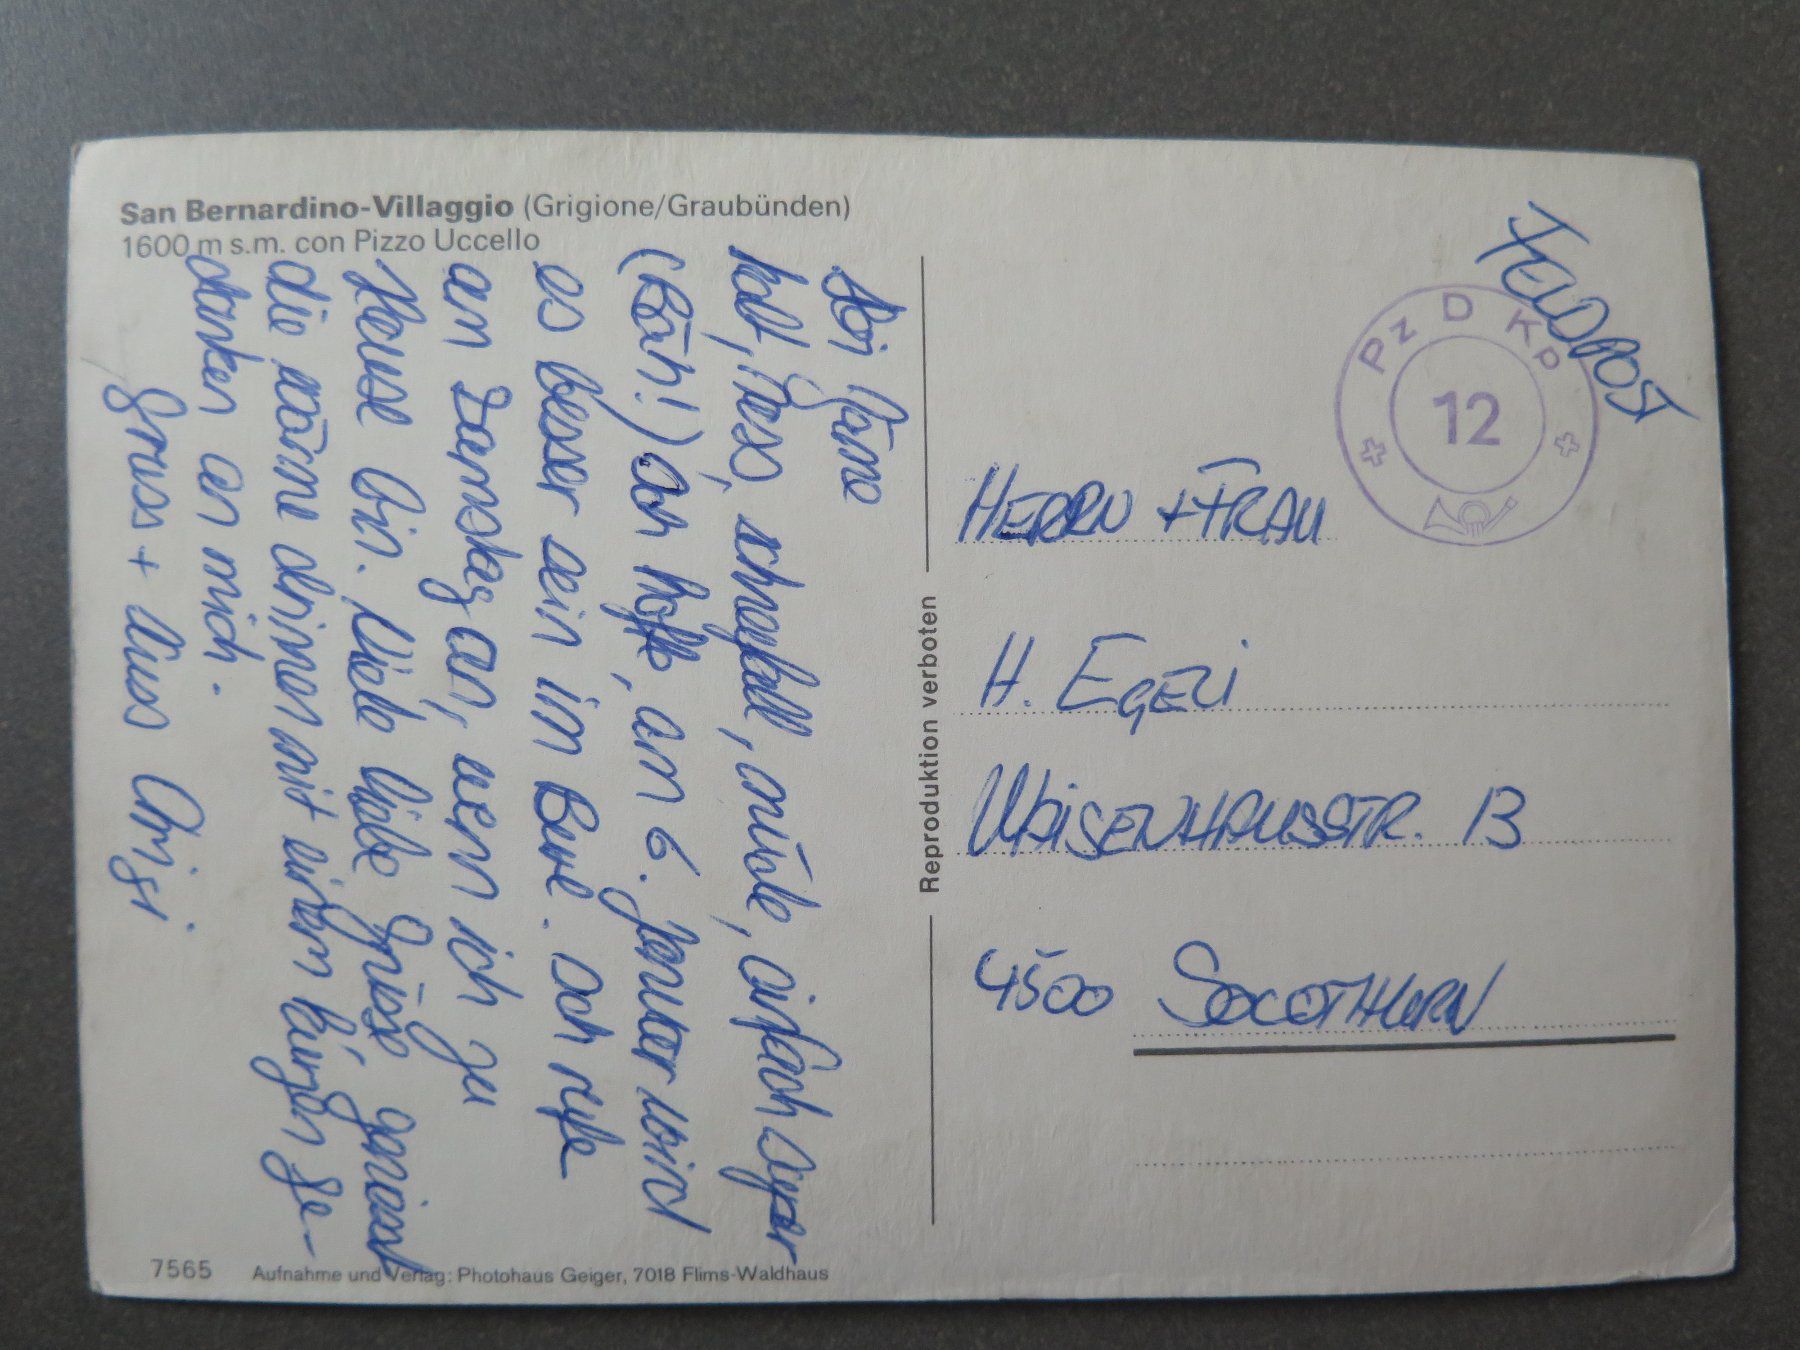 San Bernardino-Villaggio (Grigione/Graubünden)
1600 m s.m. con Pizzo Uccello
kalt, nass, schneefall, müde, einfach
(Bäh!) Ich hoffe, am 6. Januar wird
es besser sein im Büro. Ich rufe
am Samstag an, wenn ich zu
Hause bin. Viele liebe Grüsse, geniesst
die Wärme drinnen mit einem kurzen Ge-
danken an mich.
Gruss +
Reproduktion verboten
7565
Aufnahme und Verlag: Photohaus Geiger, 7018 Flims-Waldhaus
FELDPOST
Pz D Kp
12
HERRN + FRAU
H. EGELI
WAISENHAUSSTR. 13
4500 SOLOTHURN